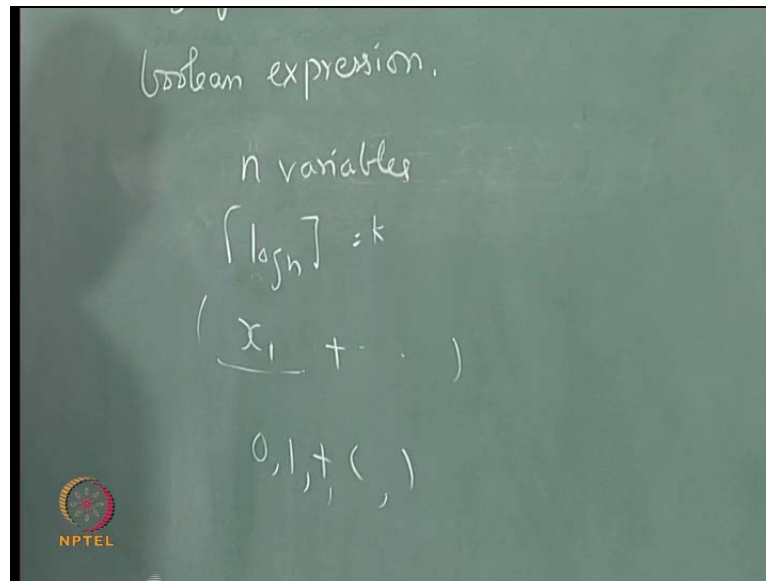 boolean expression.
n variables
⌈log n⌉ = k
( x₁ + · · )
0, 1, +, ( , )
NPTEL